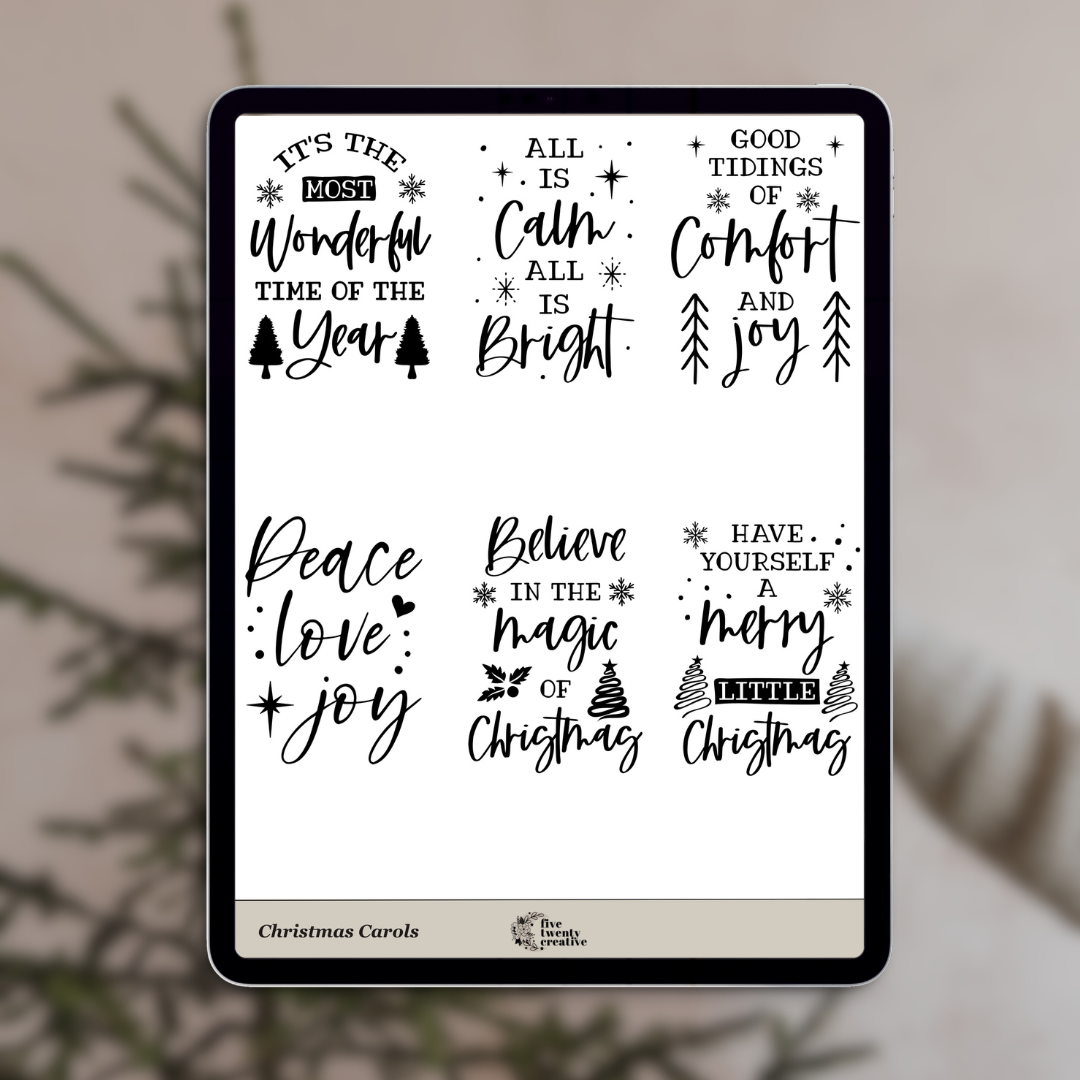 IT'S THE
MOST
Wonderful
TIME OF THE
Year
ALL
IS
Calm
ALL
IS
Bright
GOOD
TIDINGS
OF
Comfort
AND
joy
Peace
love
joy
Believe
IN THE
magic
OF
Christmas
HAVE
YOURSELF
A
merry
LITTLE
Christmas
Christmas Carols
five
twenty
creative